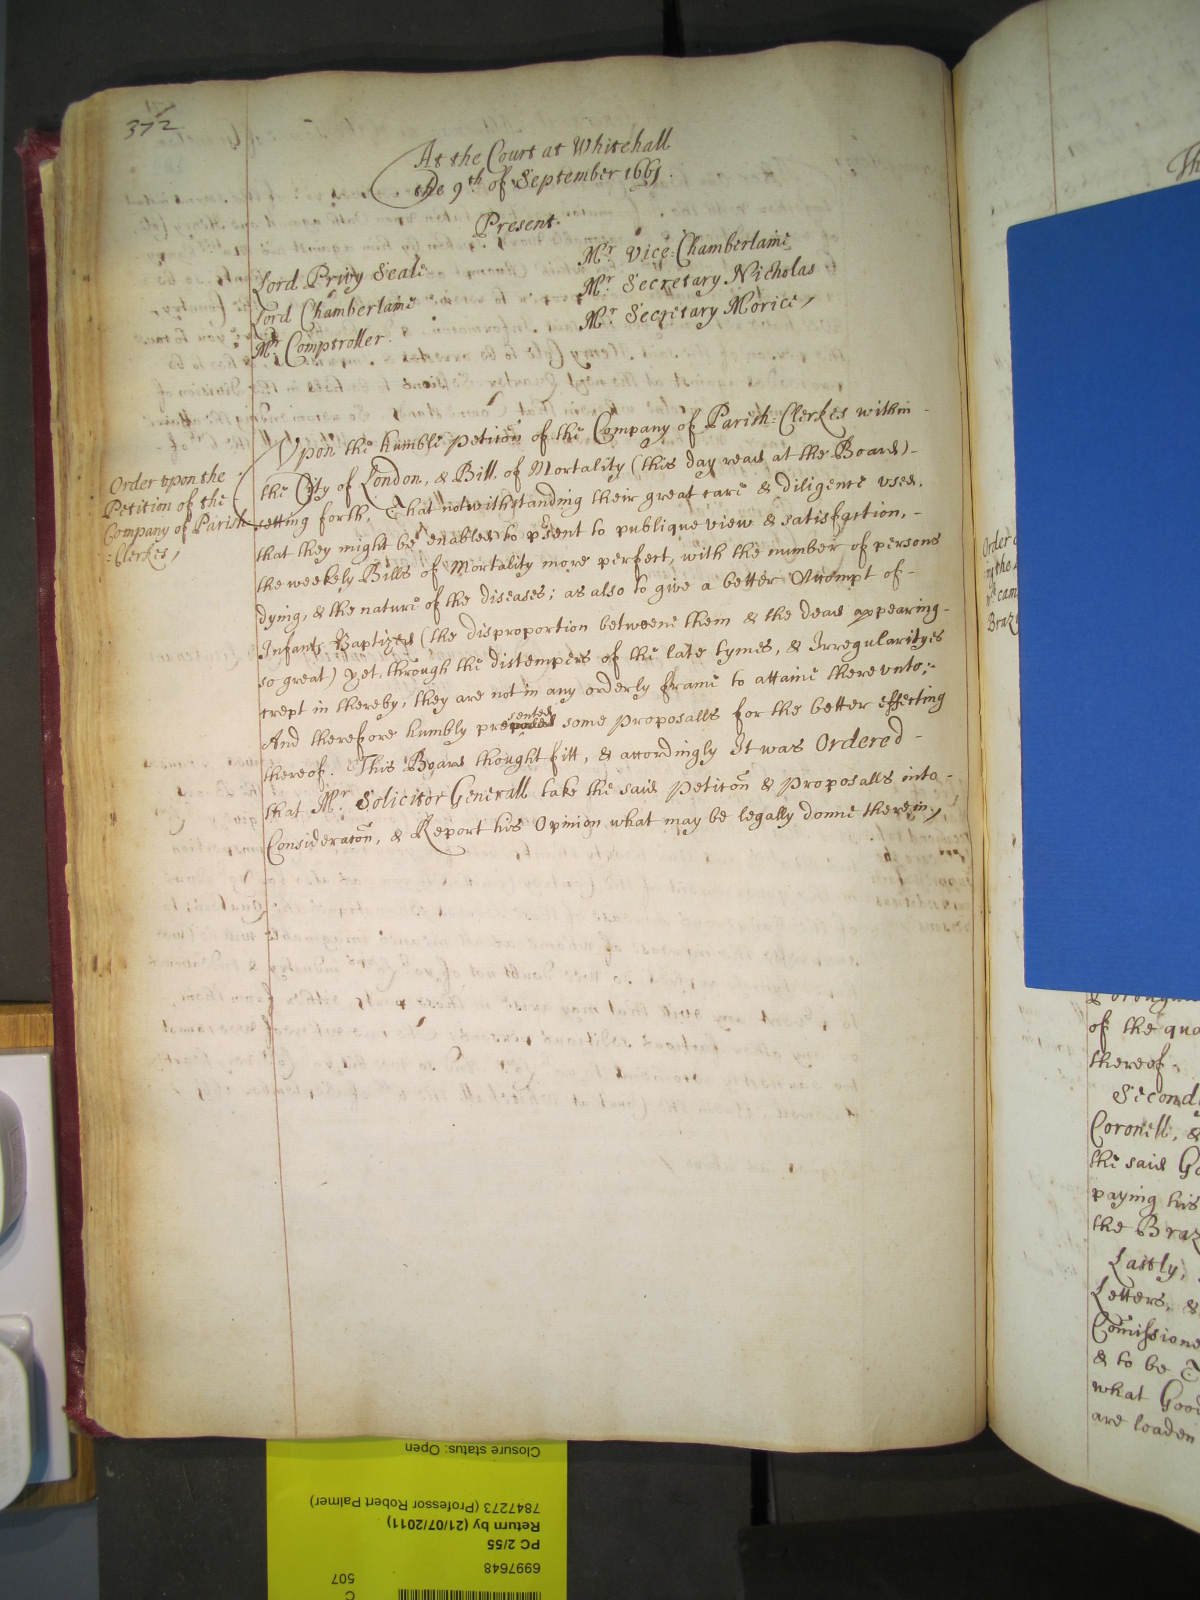 372
At the Court at Whitehall
the 9th of September 1661.
Present.
Lord Privy Seale
Lord Chamberlaine
Mr Comptroller.
Mr Vice-Chamberlaine
Mr Secretary Nicholas
Mr Secretary Morice,
Order upon the
Petition of the
Company of Parish
=Clerkes,
Upon the humble Petiton of the Company of Parish=Clerkes within -
the City of London, & Bill. of Mortality (this day read at the Board) -
setting forth, That notwithstanding their great care & diligence used,
that they might be enabled to psent to publique view & satisfaction, -
the weekely Bills of Mortality more perfect, with the number of persons
dying, & the nature of the diseases; as also to give a better Accompt of -
Infants Baptized (the disproportion betweene them & the dead appearing -
so great) yet, through the distempers of the late tymes, & Irregularityes
crept in thereby, they are not in any orderly frame to attaine thereunto;-
And therefore humbly presented some Proposalls for the better effecting
thereof. This Board thought fitt, & accordingly It was Ordered -
that Mr Solicitor Generall take the said Petiton & Proposalls into -
Consideraton, & Report his Opinion what may be legally donne therein,
Order
ing the
cam
Braz
of the qua
thereof,
Secondl
Coronell, &
the said Go
paying his
the Braz
Lastly,
Letters, &
Comissione
& to be
what Good
are loaden
Closure status: Open
7847273 (Professor Robert Palmer)
Return by (21/07/2011)
PC 2/55
6997648
507
C